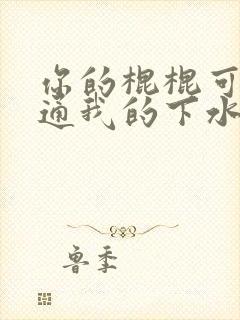 你的棍棍可
通我的下水
鲁季